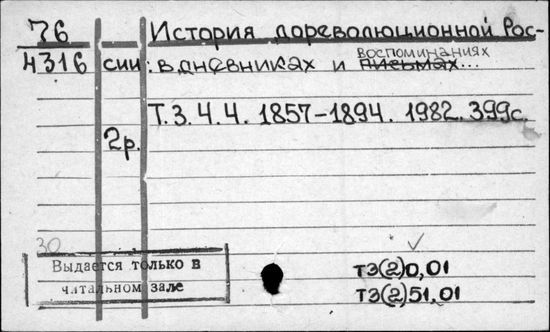 76 История дореволюционной Рос-
4316 сии: в дневниках и воспоминаниях письмах...
Т.3. Ч.4. 1857-1894. 1982. 399с.
2р.
30
Выдается только в
читальном зале
Т3(2)0,01
Т3(2)51,01